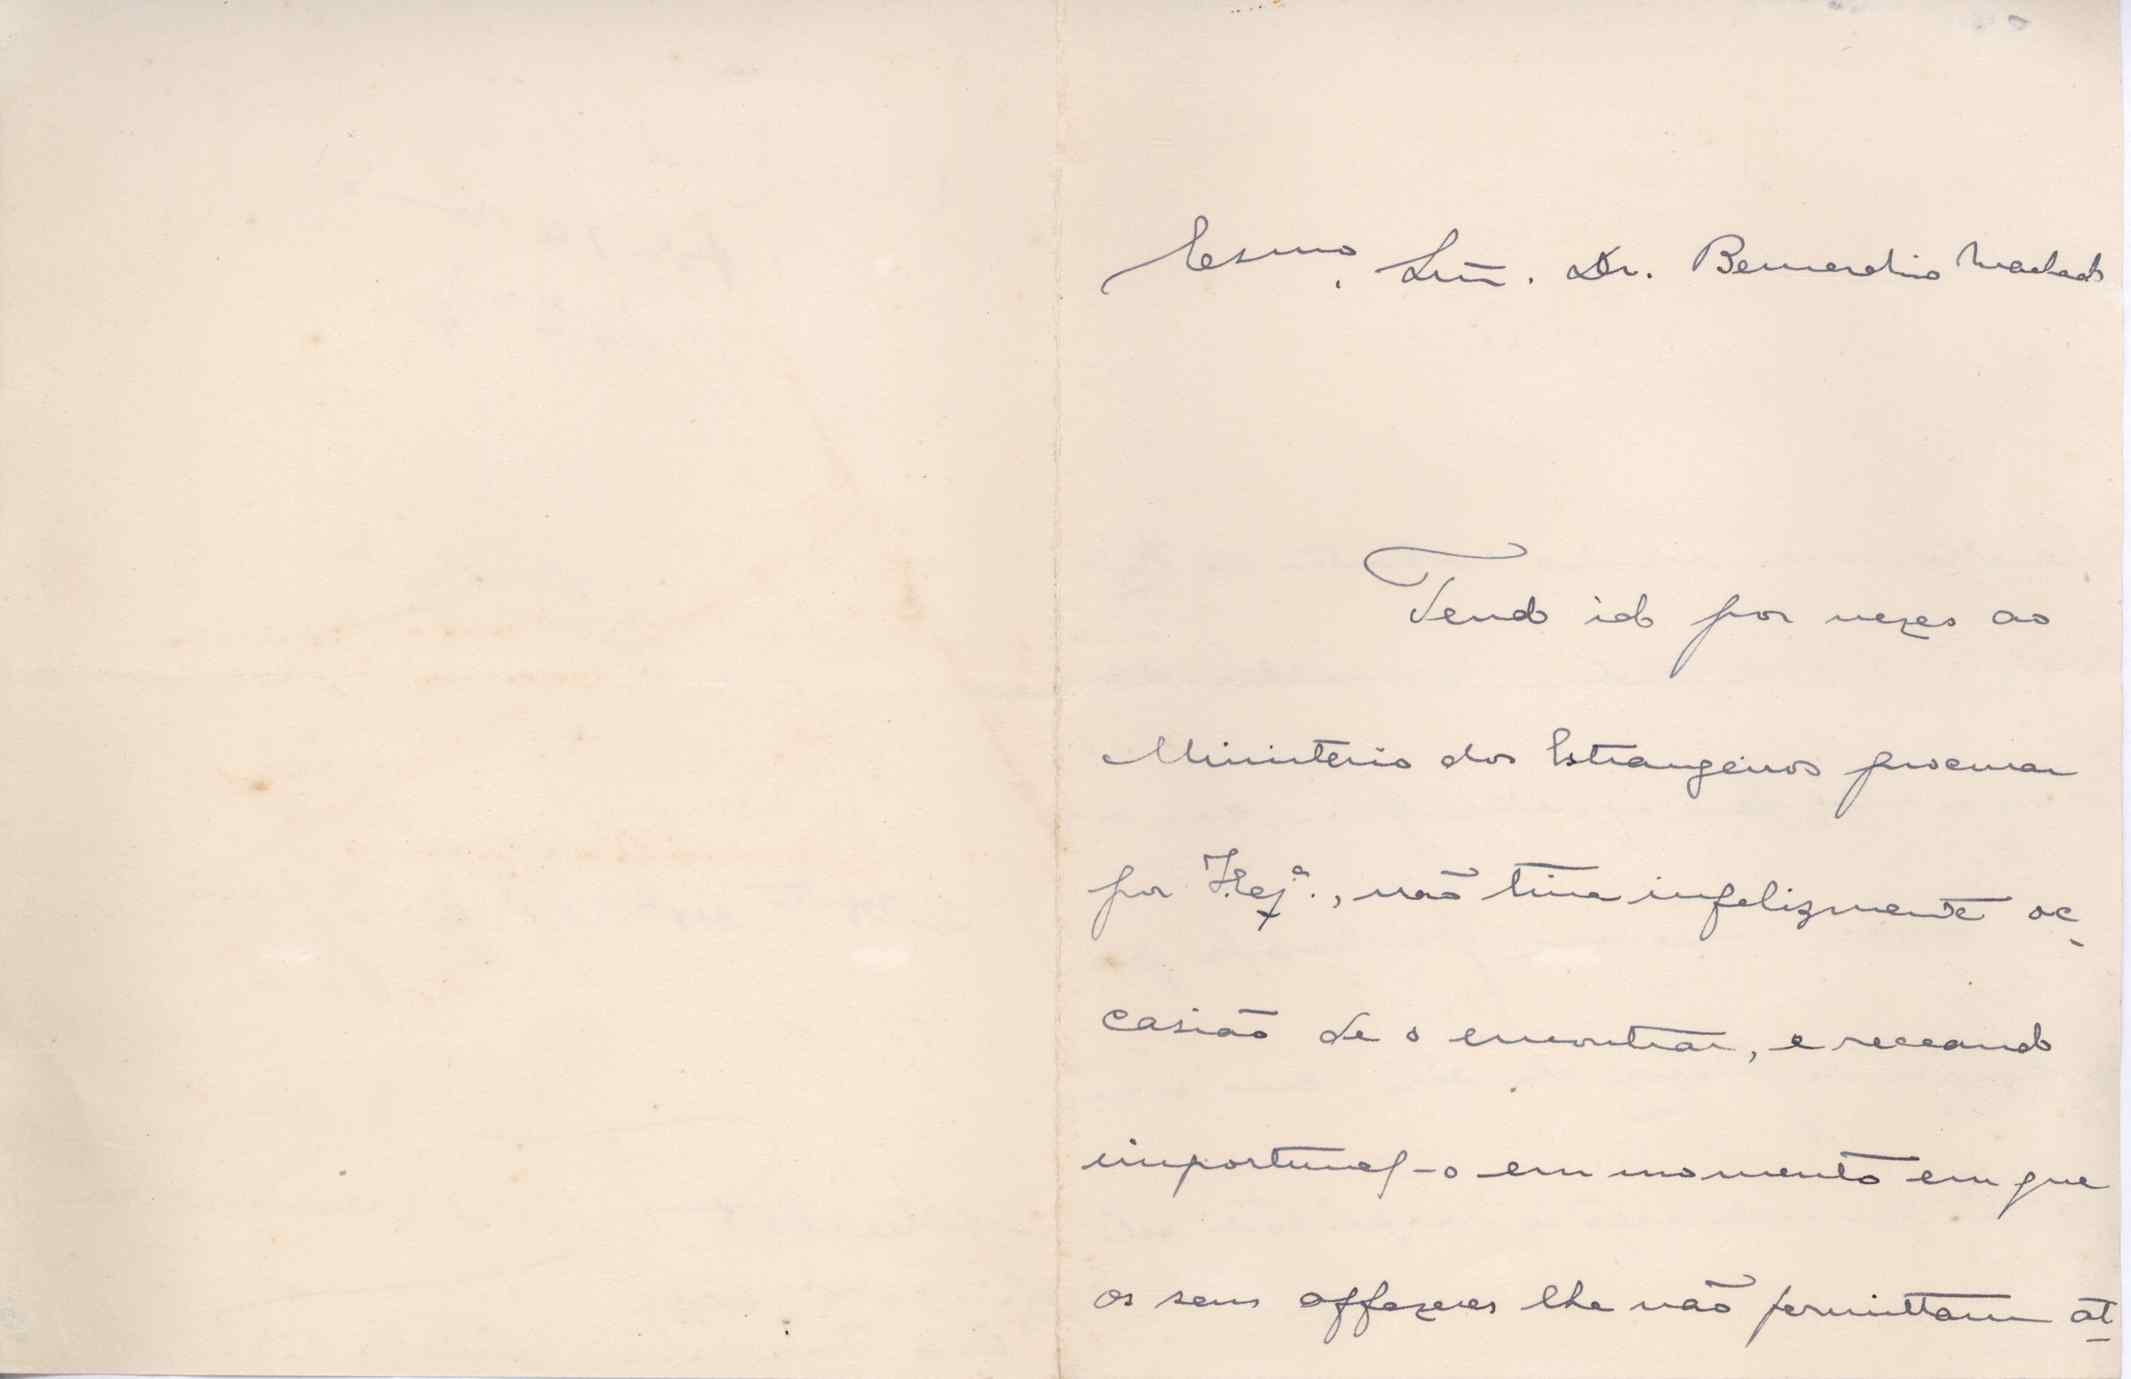 Exmo. Snr. Dr. Bernardino Machado
Tendo ido por vezes ao
Ministerio dos Estrangeiros procurar
por V. Exª., não tive infelizmente oc-
casião de o encontrar, e receando
importunal-o em momento em que
os seus affazeres lhe não permittam at-